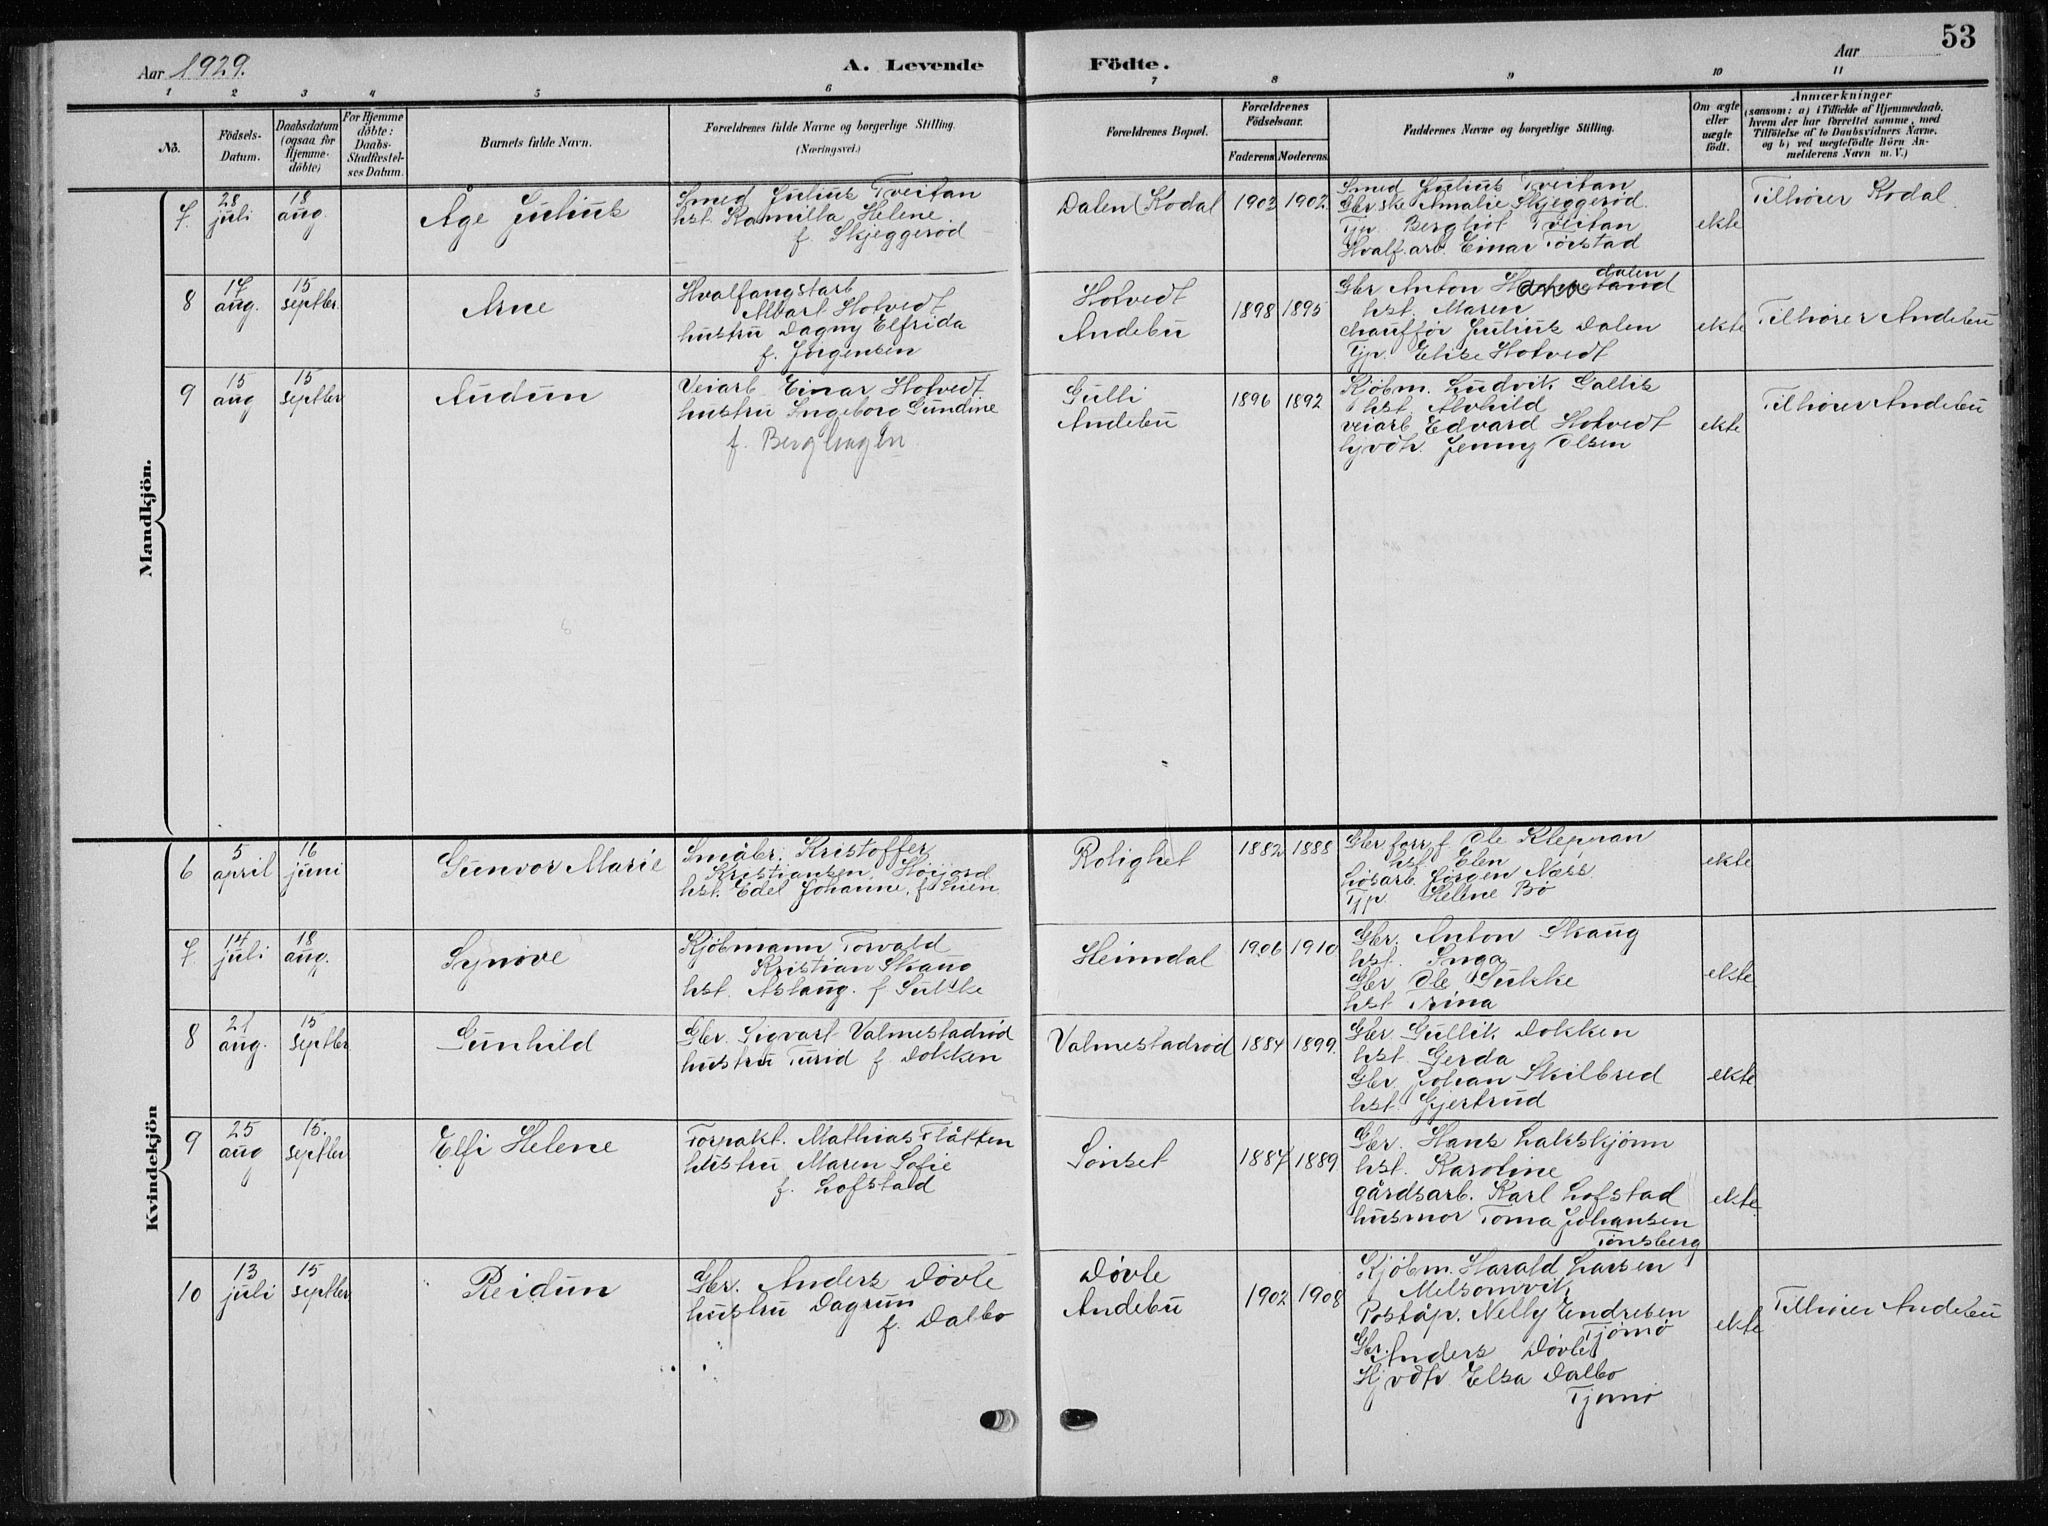 53
Aar 1929.
A. Levende
Födte.
Aar
1 2 3 4 5 6 7 8 9 10 11
No.
Födsels-
Datum.
Daabsdatum
(ogsaa for
Hjemme-
döbte)
For Hjemme
döbte:
Daabs-
Stadfæstel-
ses Datum.
Barnets fulde Navn.
Forældrenes fulde Navne og borgerlige Stilling.
(Næringsvei.)
Forældrenes Bopæl.
Forældrenes
Födselsaar.
Faderens Moderens
Faddernes Navne og borgerlige Stilling.
Om ægte
eller
uægte
födt.
Anmærkninger
(saasom: a) i Tilfælde af Hjemmedaab.
hvem der har forrettet samme, med
Tilföielse af to Daabsvidners Navne.
og b) ved uægtefödte Börn An-
melderens Navn m. V.)
Mandkjön.
7.
28
juli
18
aug.
Åge Julius
Smed Julius Tveitan
hst. Kamilla Helene
f. Skjeggerød
Dalen (Kodal
1903 1902
Smed Julius Tveitan
Gbr ske Amalie Skjeggerød
Tjp. Bergliot Tveitan
Hvalf.arb. Einar Torstad
ekte
Tilhører Kodal
8
17
aug.
15
septbr.
Arne
Hvalfangstarb
Albart Hotvedt
hustru Dagny Elfrida
f. Jørgensen
Hotvedt
Andebu
1898 1895
Gbr Anton dalen
hst. Maren
chauffør Julius Dalen
Tjp. Elise Hotvedt
ekte
Tilhører Andebu
9
15
aug
15
septbr
Audun
Veiarb Einar Hotvedt
hustru Ingeborg Gundine
f. Berghagen
Gulli
Andebu
1896 1892
Kjøbm. Ludvik Gallis
hst. Alvhild
veiarb Edvard Hotvedt
hjvdh. Jenny Olsen
ekte
Tilhører Andebu
Kvindekjön
6
5
april
16
juni
Gunvor Marie
Småbr. Kristoffer
Kristiansen, Høijord
hst. Edel Johanne, f. Lien
Rolighet
1882 1888
Gbr forr f Ole Klepvan
hst. Elen
løsarb Jørgen Næss
Tjp. Helene Bø
ekte
7.
14
juli
18
aug.
Synøve
Kjøbmann Torvald
Kristian Skaug
hst. Aslaug. f Sukke
Heimdal
1906 1910
Gbr. Anton Skaug
hst. Inga
Gbr Ole Sukke
hst Trina
ekte
8
21
aug.
15
septbr
Gunhild
Gbr. Sigvart Valmestadrød
hustru Turid f. Dokken
Valmestadrød
1884 1899.
Gbr. Gullik Dokken
hst. Gerda
Gbr Johan Skilbred
hst. Gjertrud
ekte
9
25
aug
15.
septbr
Elfi Helene
Forpakt. Mathias Flåtten
hustru Maren Sofie
f. Lofstad
Sønset
1887 1889
Gbr. Hans Lakskjønn
hst. Karoline
gårdsarb. Karl Lofstad
husmor Toma Johansen
Tønsberg
ekte.
10
13
juli
15
septbr
Reidun
Gbr. Anders Døvle
hustru Dagrun
f. Dalbo
Døvle
Andebu
1902 1908
Kjøbm. Harald Larsen
Melsomvik
Poståp. Nelly Endresen
Tjømø
Gbr. Anders Døvle
Hjvdh. Elsa Dalbo
Tjømø
ekte
Tilhører Andebu